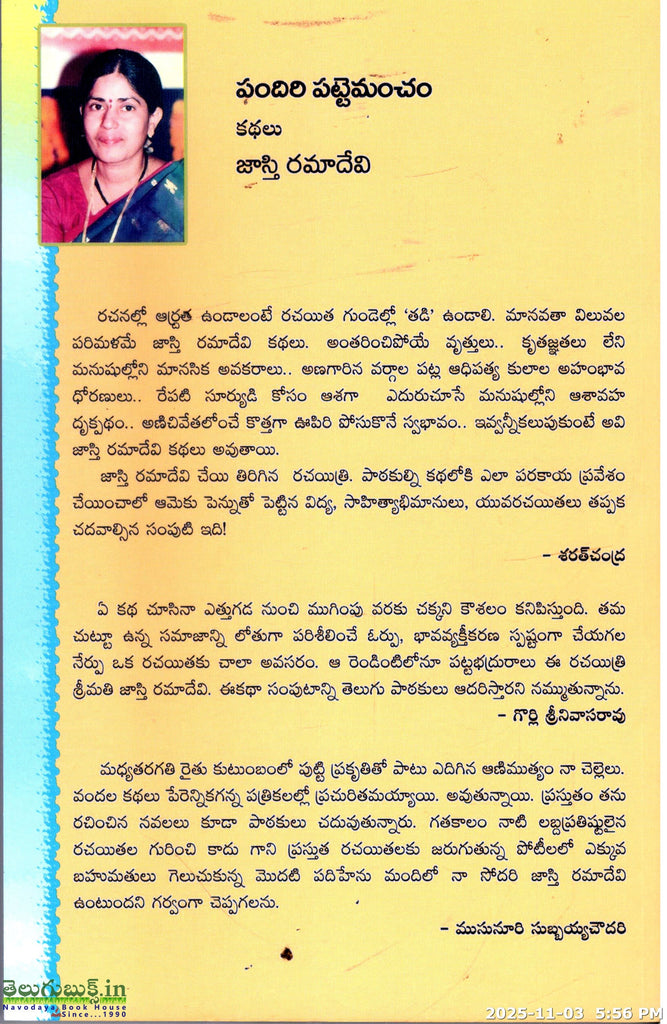 పందిరి పట్టెమంచం
కథలు
జాస్తి రమాదేవి
రచనల్లో ఆర్ద్రత ఉండాలంటే రచయిత గుండెల్లో 'తడి' ఉండాలి. మానవతా విలువల
పరిమళమే జాస్తి రమాదేవి కథలు. అంతరించిపోయే వృత్తులు.. కృతజ్ఞతలు లేని
మనుషుల్లోని మానసిక అవకరాలు.. అణగారిన వర్గాల పట్ల ఆధిపత్య కులాల అహంభావ
ధోరణులు.. రేపటి సూర్యుడి కోసం ఆశగా ఎదురుచూసే మనుషుల్లోని ఆశావహ
దృక్పథం.. అణిచివేతలోంచే కొత్తగా ఊపిరి పోసుకొనే స్వభావం.. ఇవ్వన్నీకలుపుకుంటే అవి
జాస్తి రమాదేవి కథలు అవుతాయి.
జాస్తి రమాదేవి చేయి తిరిగిన రచయిత్రి. పాఠకుల్ని కథలోకి ఎలా పరకాయ ప్రవేశం
చేయించాలో ఆమెకు పెన్నుతో పెట్టిన విద్య, సాహిత్యాభిమానులు, యువరచయితలు తప్పక
చదవాల్సిన సంపుటి ఇది!
– శరత్‌చంద్ర
ఏ కథ చూసినా ఎత్తుగడ నుంచి ముగింపు వరకు చక్కని కౌశలం కనిపిస్తుంది. తమ
చుట్టూ ఉన్న సమాజాన్ని లోతుగా పరిశీలించే ఓర్పు, భావవ్యక్తీకరణ స్పష్టంగా చేయగల
నేర్పు ఒక రచయితకు చాలా అవసరం. ఆ రెండింటిలోనూ పట్టభద్రురాలు ఈ రచయిత్రి
శ్రీమతి జాస్తి రమాదేవి. ఈకథా సంపుటాన్ని తెలుగు పాఠకులు ఆదరిస్తారని నమ్ముతున్నాను.
– గొర్లి శ్రీనివాసరావు
మధ్యతరగతి రైతు కుటుంబంలో పుట్టి ప్రకృతితో పాటు ఎదిగిన ఆణిముత్యం నా చెల్లెలు.
వందల కథలు పేరెన్నికగన్న పత్రికలల్లో ప్రచురితమయ్యాయి. అవుతున్నాయి. ప్రస్తుతం తను
రచించిన నవలలు కూడా పాఠకులు చదువుతున్నారు. గతకాలం నాటి లబ్దప్రతిష్టులైన
రచయితల గురించి కాదు గాని ప్రస్తుత రచయితలకు జరుగుతున్న పోటీలలో ఎక్కువ
బహుమతులు గెలుచుకున్న మొదటి పదిహేను మందిలో నా సోదరి జాస్తి రమాదేవి
ఉంటుందని గర్వంగా చెప్పగలను.
– ముసునూరి సుబ్బయ్యచౌదరి
తెలుగుబుక్స్.in
Navodaya Book House
Since...1990
2025-11-03 5:56 PM